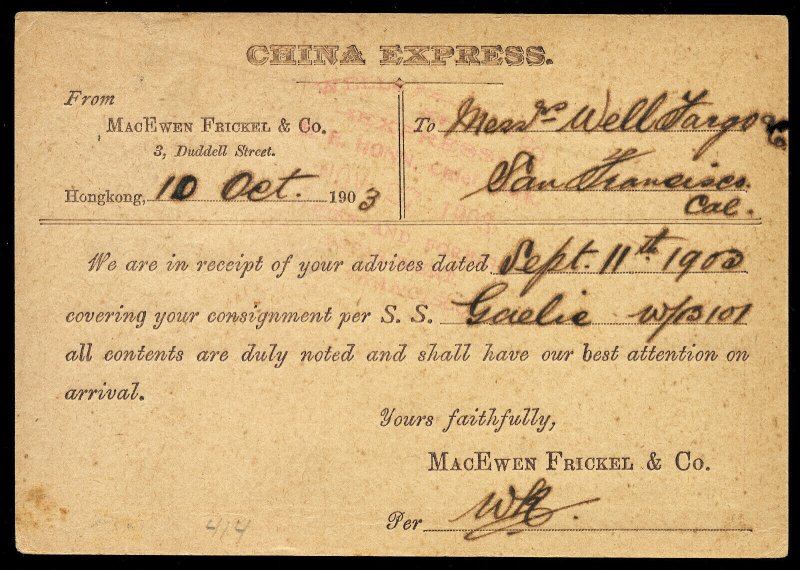 CHINA EXPRESS.
From
MACEWEN FRICKEL & CO.
3, Duddell Street.
Hongkong, 10 Oct. 1903
To Messrs Well Fargo & Co
San Francisco.
Cal.
We are in receipt of your advices dated Sept. 11th 1903
covering your consignment per S. S. Gaelic W/B 101
all contents are duly noted and shall have our best attention on
arrival.
Yours faithfully,
MACEWEN FRICKEL & CO.
Per
414